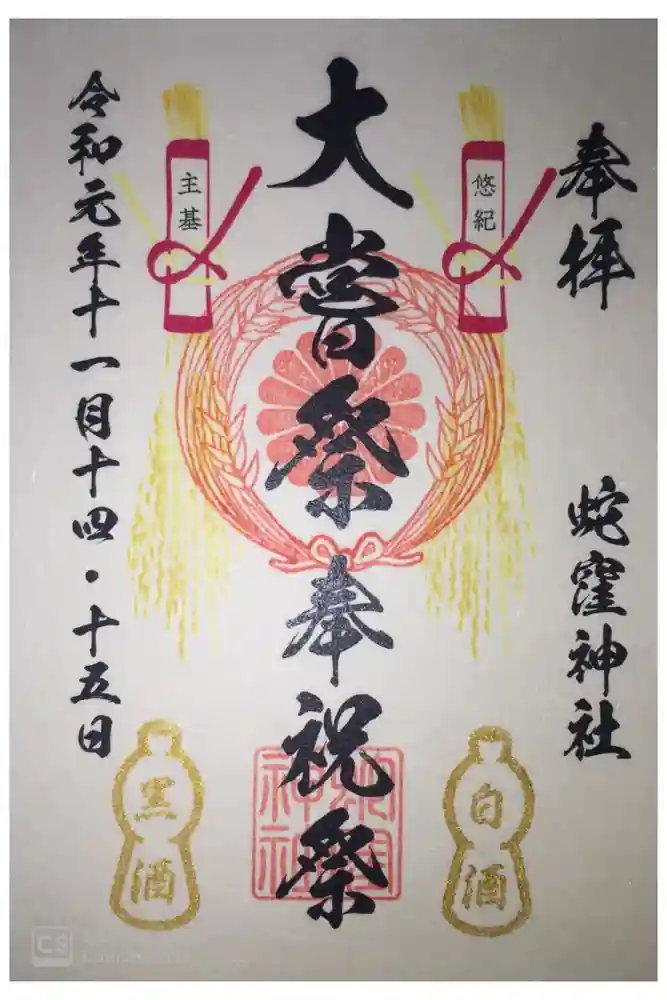 奉拝
蛇窪神社
悠紀
大嘗祭奉祝祭
主基
令和元年十一月十四・十五日
白酒
黒酒
蛇窪神社
CS